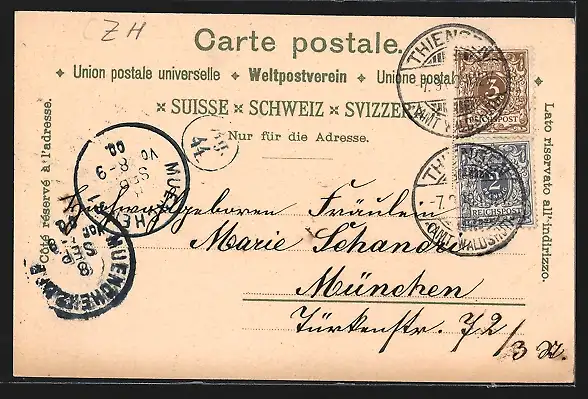 ZH
Carte postale.
Union postale universelle ✦ Weltpostverein ✦ Unione postale
× SUISSE × SCHWEIZ × SVIZZERA
Nur für die Adresse.
Côté réservé à l'adresse.
Lato riservato all'indirizzo.
THIENGEN
(AMT WALDSHUT)
3
REICHSPOST
THIENGEN
(AMT WALDSHUT)
2
REICHSPOST
44
MUENCHEN
Hochwohlgeboren Fräulein
Marie Schandri
München
Türkenstr. 72
/3